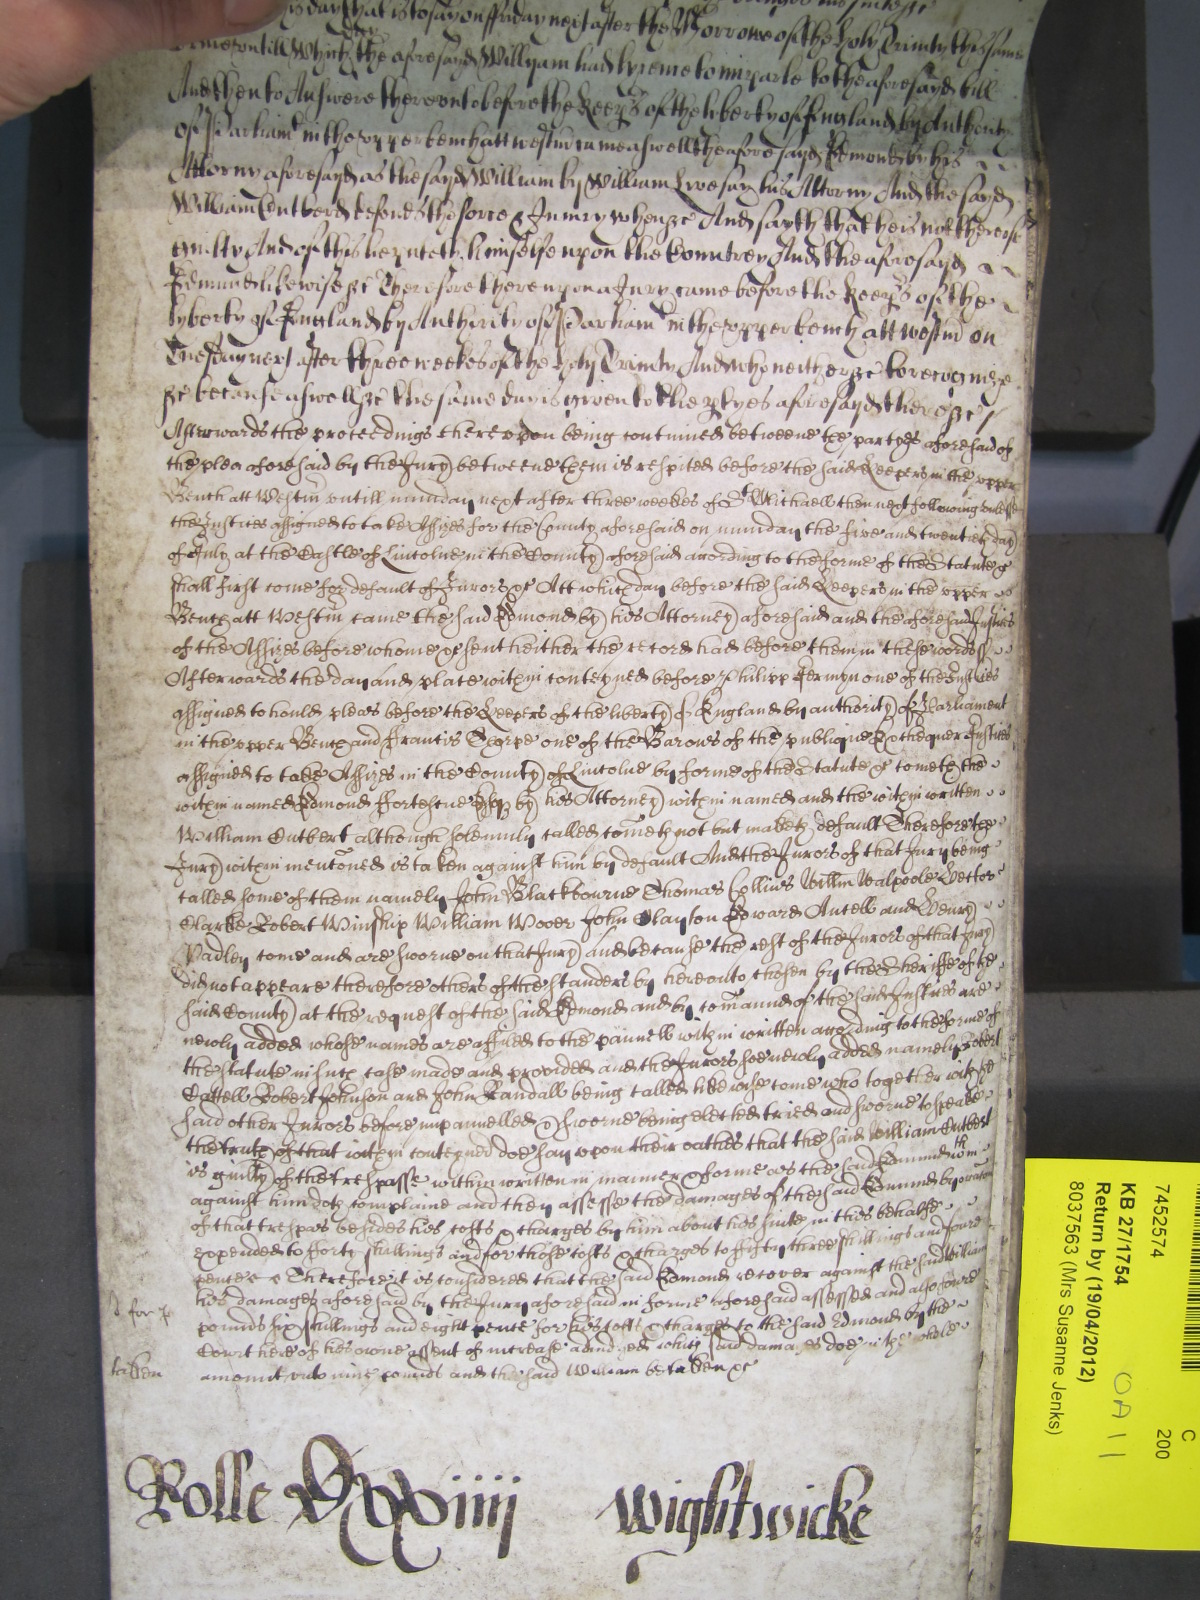 is day that is to say on ffriday next after the Morrowe of the holy Trinity this same
terme untill whych the aforesayd Willyam had lycence to imparle to the aforesayd bill
And then to Answere thereunto before the keep's of the liberty of England by Authority
of Parliamt in the upper bench att westm came aswell the aforesayd Edmond by his
Attorny aforesayd as the sayd William by William Livesay his Attorny And the sayd
William Cutberd defends the force & Iniury whenzc And sayth that he is not thereof
guilty And of this hee putteth himselfe upon the Countrey And the aforesayd
Edmund likewise zc Therefore thereupon a Jury came before the keep's of the
lyberty of England by Authority of Parliamt in the upper bench att westm on
Tuesday next after three weekes of the holy Trinity And who neither zc to recognize
zc because aswell zc the same day is given to the ptyes aforesayd there zc /
Afterwards the proceedings thereupon being continued betweene the partyes aforesaid of
the plea aforesaid by the Jury betweene them is respited before the said Keepers in the upper
Bench att Westm untill munday next after three weekes of St Michaell then next following unlesse
the Justices assigned to take Assizes for the County aforesaid on munday the five and twentieth day
of July at the Castle of Lincolne in the County aforesaid according to the forme of the Statute zc
shall first come for default of Jurors zc Att which day before the said Keepers in the upper
Bench att Westm came the said Edmond by his Attorney aforesaid and the aforesaid Justices
of the Assizes before whome zc sent heither the record had before them in these words ss
Afterwards the day and place within conteyned before Philipp Jermyn one of the Justices
assigned to hould pleas before the Keepers of the liberty of England by authority of Parliament
in the upper Bench and Francis Thorpe one of the Barons of the publique Exchequer Justices
assigned to take Assizes in the County of Lincolne by forme of the Statute zc cometh the
within named Edmond ffortescue Esq by his Attorney within named and the within written
William Cutbert although solemnly called cometh not but maketh default Therefore the
Jury within mentoned is taken against him by default And the Jurors of that Jury being
called some of them namely John Blackbourne Thomas Collins Willm Walpoole Hector
Clarke Robert Winship William Wover John Clayton Edward Antell and Henry
Padley come and are sworne on that Jury And because the rest of the Jurors of that Jury
did not appeare therefore others of the standers by hereonto chosen by the Sheriffe of the
said County at the request of the said Edmond and by comaund of the said Justices are
newly added whose names are affiled to the pannell within written according to the forme of
the statute in such case made and provided and the Jurors soe newly added namely Robert
Cattell Robert Johnson and John Randall being called likewise come who together with the
said other Jurors before impannelled & sworne being elected tried and sworne to speake
the truth of that within conteyned doe say upon their oathes that the said William Cutbert
is guilty of the trespasse within written in manner & forme as the said Edmund wthin
against him doth complaine and they assesse the damages of the said Edmund by occation
of that trespas besides his costs & charges by him about his suite in this behalfe
expended to fforty shillings and for those costs & charges to fifty three shillings and foure
pence Therefore it is considered that the said Edmond recover against the said William
his damages aforesaid by the Jury aforesaid in forme aforesaid assessed and also foure
pounds six shillings and eight pence for his costs & charges to the said Edmond by the
Court here of his owne assent of increase adiudged which said damages doe in the whole
amount unto nine pounds and the said William be taken zc
taken
Rolle Dxxiiij Wightwicke
7452574
KB 27/1754
Return by (19/04/2012)
8037563 (Mrs Susanne Jenks)
C
200
OA 11